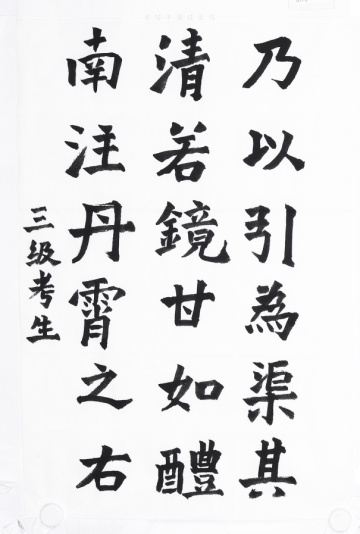 乃以引為渠其
清若鏡甘如醴
南注丹霄之右
三级考生